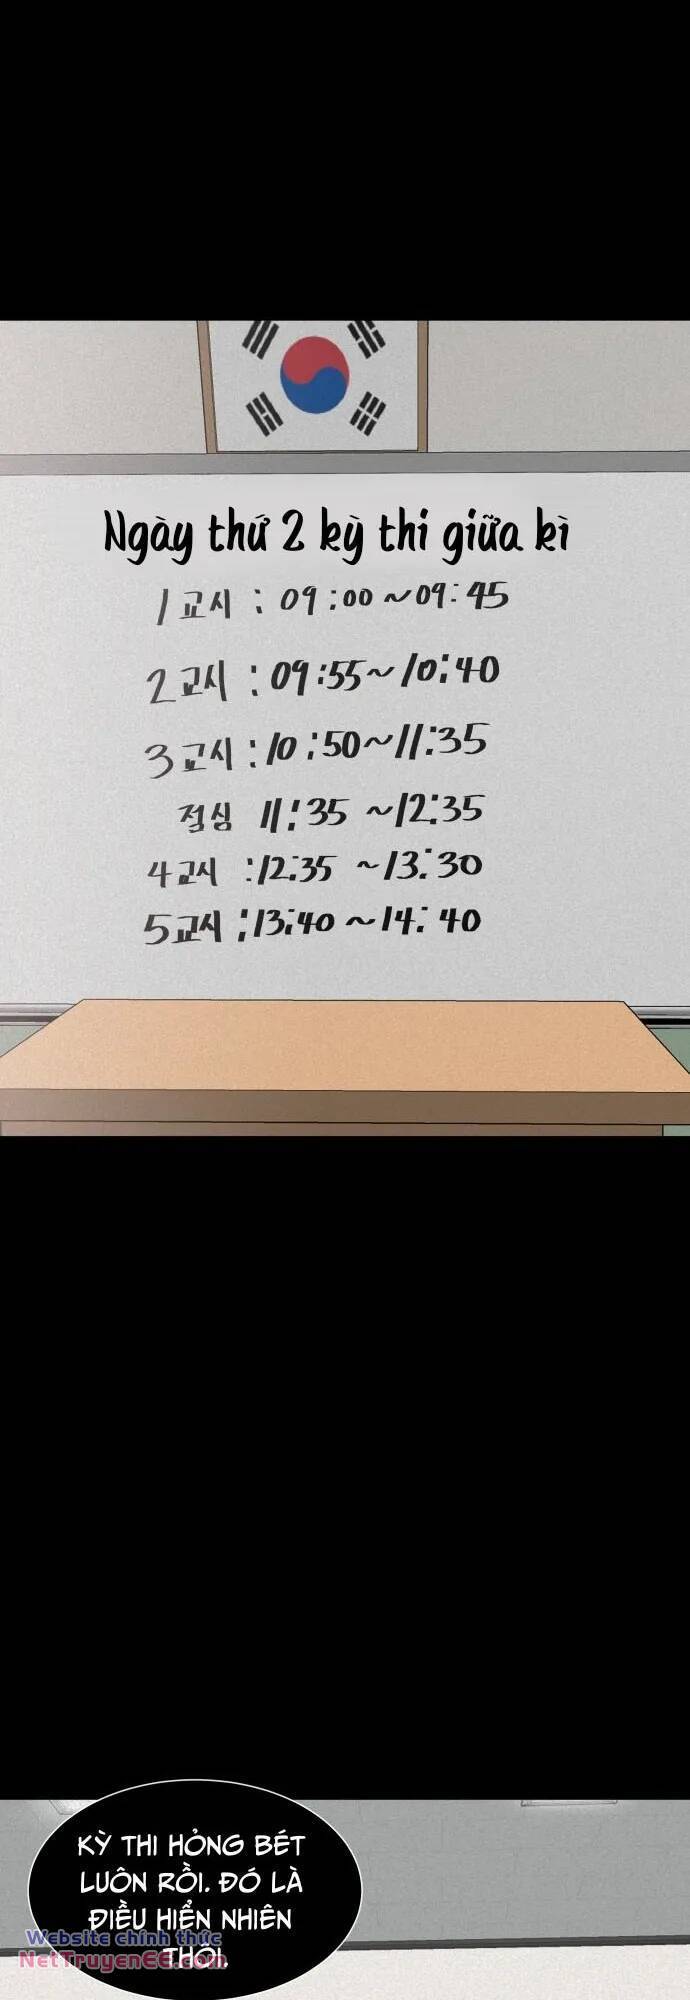 Ngày thứ 2 kỳ thi giữa kì
1교시 : 09:00 ~ 09:45
2교시 : 09:55 ~ 10:40
3교시 : 10:50 ~ 11:35
점심 11:35 ~ 12:35
4교시 : 12:35 ~ 13:30
5교시 : 13:40 ~ 14:40
KỲ THI HỎNG BÉT
LUÔN RỒI. ĐÓ LÀ
ĐIỀU HIỂN NHIÊN
THÔI.
Website chính thức
NetTruyenEE.com